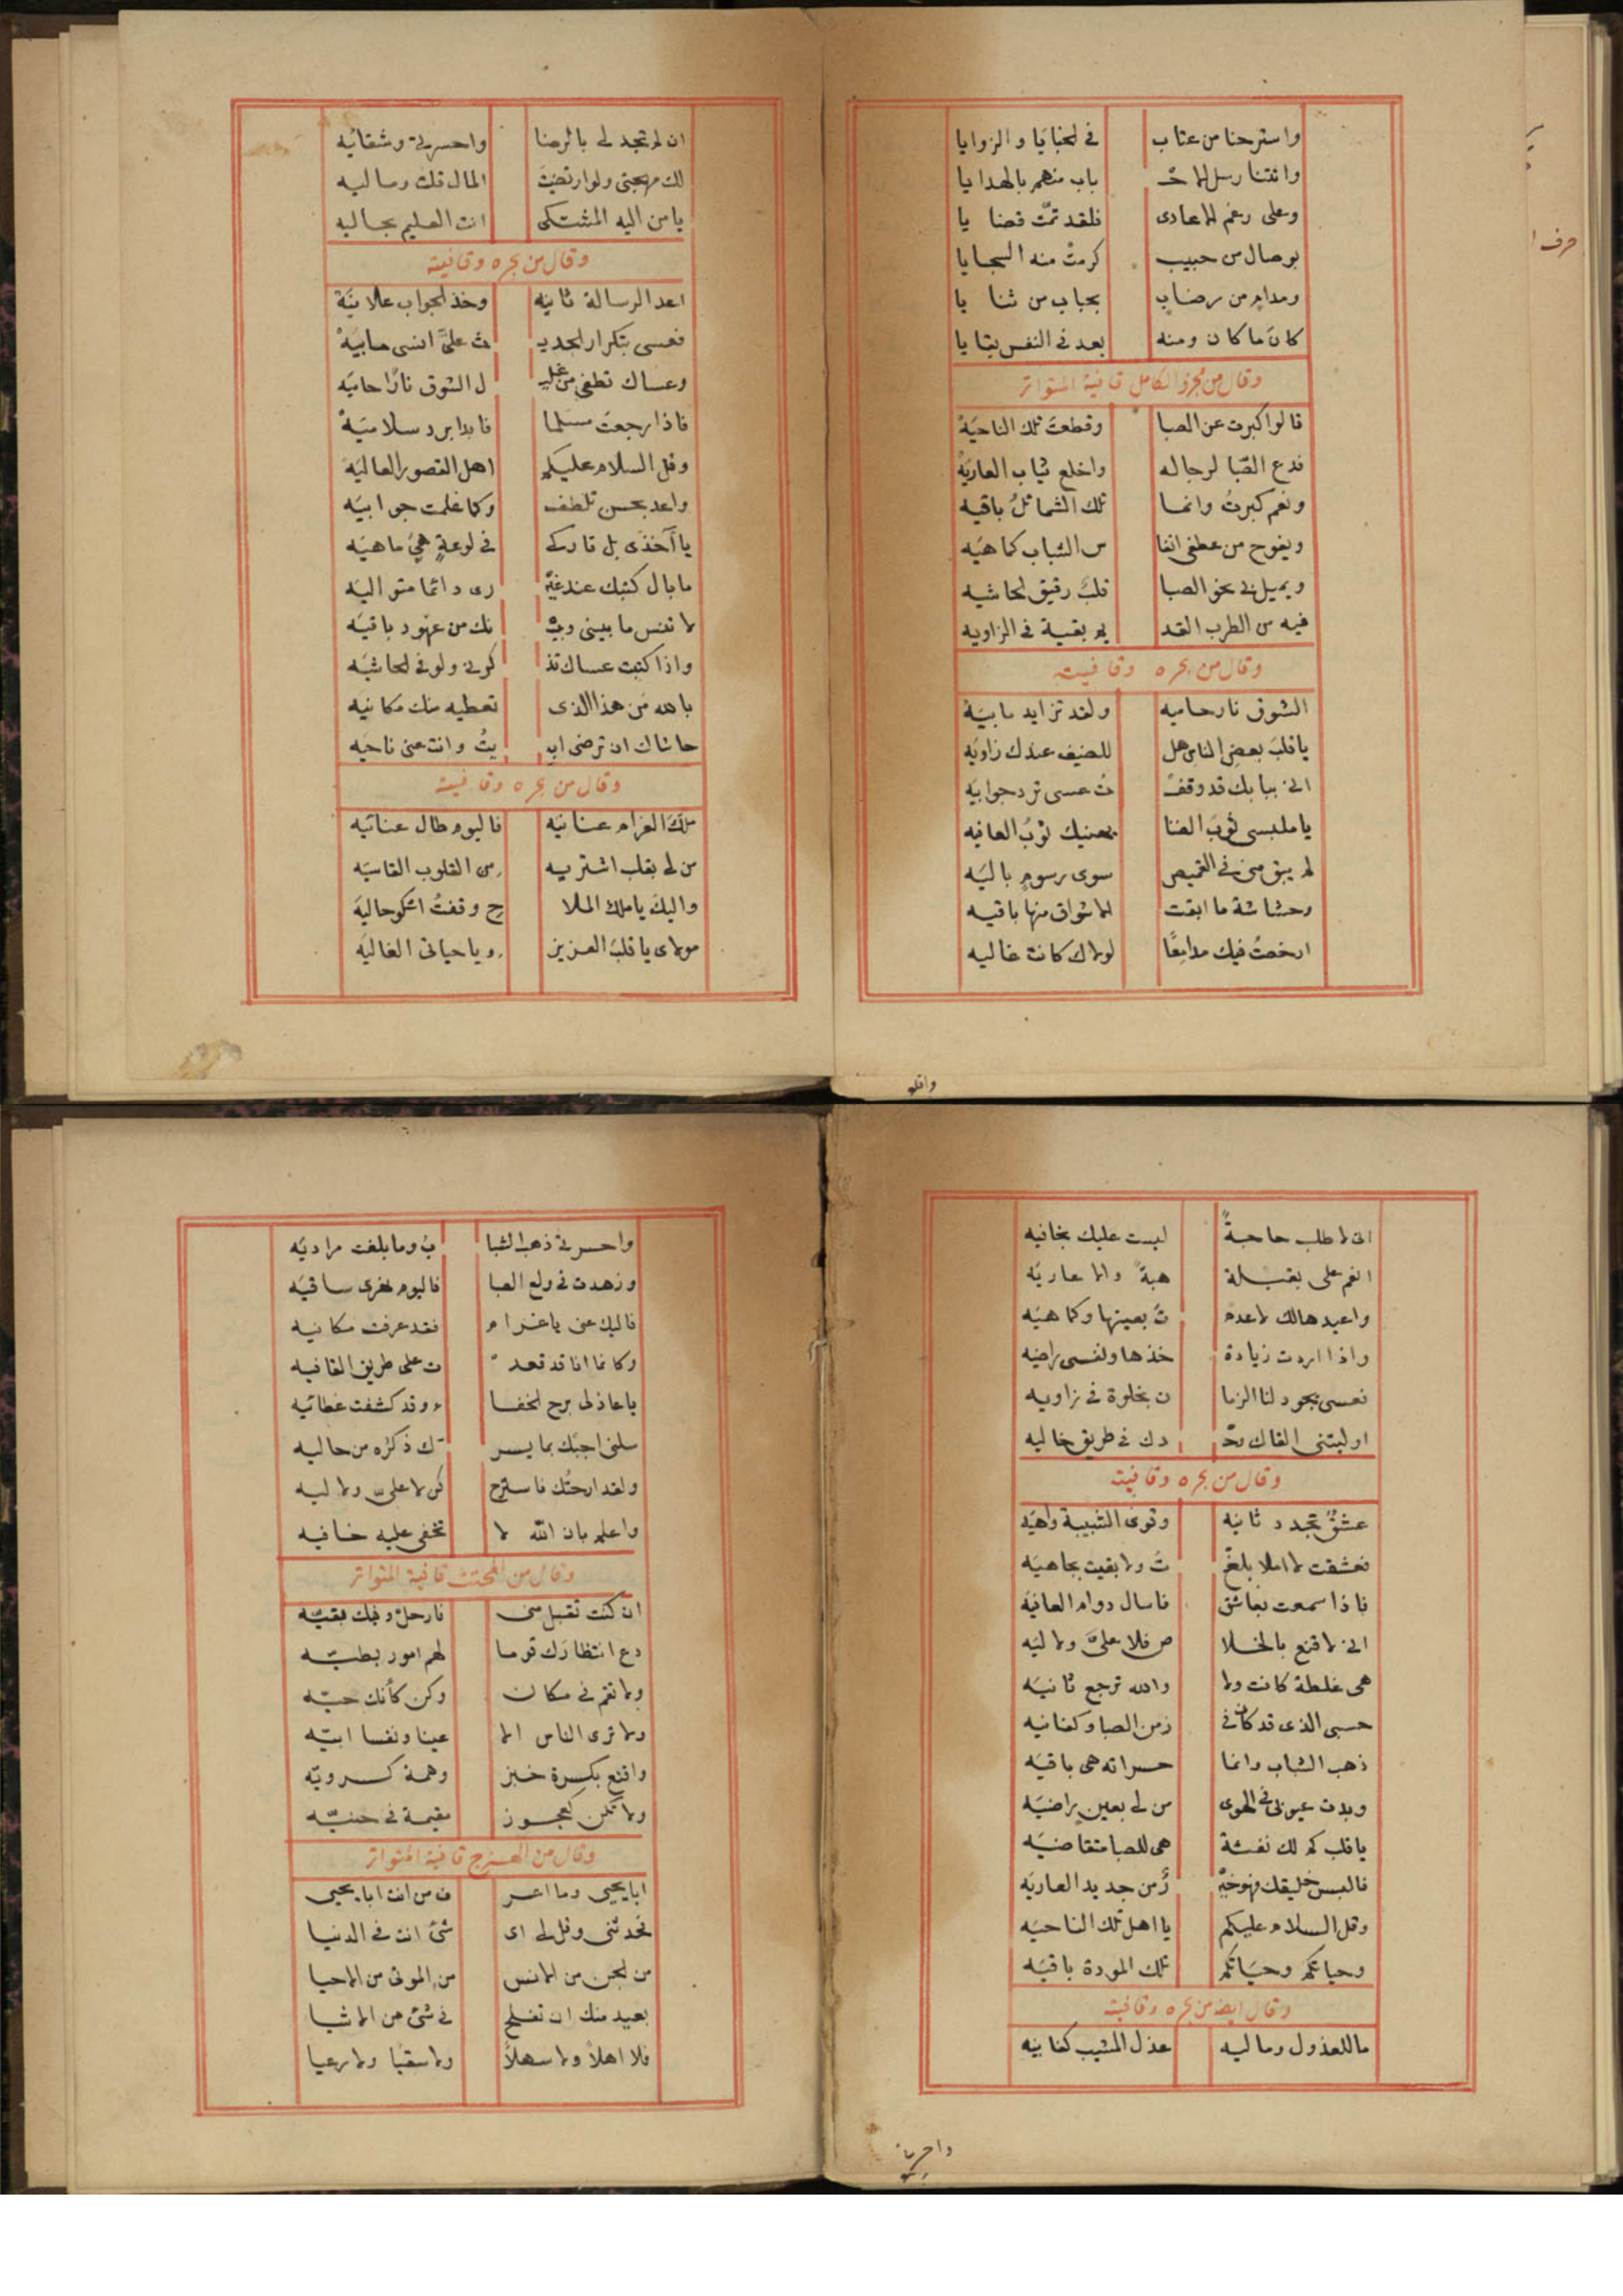 واسترحنا من عتاب في الخبايا والزوايا
واتتنا رسل الاحـ باب منهم بالهدايا
وعلى رغم الاعادى فلقد تمّت قضا يا
بوصال من حبيب كرمت منه السجايا
ومدام من رضاب بحباب من ثنا يا
كان ما كان ومنه بعد في النفس بقايا
وقال من مجزو الكامل قافية المتواتر
قالوا كبرت عن الصبا وقطعت تلك الناحية
فدع الصّبا لرجاله واخلع ثياب العاريَة
ونعم كبرتُ وانما تلك الشمائلُ باقيه
ويفوح من عطفى انفا س الشباب كما هيَه
ويميل بى نحو الصبا قلبٌ رقيق الحاشيه
فيه من الطرب القد يم بقية في الزاويه
وقال من بحره وقافيته
الشوق نار حاميه ولقد تزايد ما بيَة
يا قلبَ بعضِ الناس هل للضيف عندك زاويَه
انى ببابك قد وقفـ تُ عسى ترد جوابيَه
يا ملبسى ثوبَ الضنا يهنيك ثوبُ العافيه
لم يبق منى في القميص سوى رسوم باليَه
وحشاشة ما ابقت الاشواق منها باقيه
ارخصتُ فيك مدامِعًا لولاك كانت غاليه
واقلو
حرف ا
ان لم تجد لى بالرضا واحسرتى وشقائيه
لك مهجتى ولو ارتضيتَ المال قلت وماليه
يا من اليه المشتكى انت العليم بحاليه
وقال من بحره وقافيته
اعد الرسالة ثانيه وخذ الجواب علانيَة
فعسى بتكرار الحديـ ث علىَّ انسى ما بيَه
وعساك تطفى من غليـ ل الشوق نارًا حاميَه
فاذا رجعتَ مسلما فابدا برد سلاميَه
وقل السلام عليكم اهل القصور العاليَه
واعد بحسن تلطف وكما علمت جوابيَه
يا آخذى بل تاركى في لوعةٍ هىَ ماهيَه
ما بال كتبك عند غيـ رى دائما متواليَه
لا تنس ما بينى وبيـ نك من عهود باقيَه
واذا كتبت عساك تذ كرنى ولو في الحاشيَه
بالله من هذا الذى تعطيه منك مكانيه
حاشاك ان ترضى ابيـ يتُ وانت عنى ناحيَه
وقال من بحره وقافيته
ملك الغرام عنانيَه فاليوم طال عنائيه
من لى بقلب اشتريه من القلوب القاسيَه
واليك يا ملك الملا ح وقفتُ اشكو حاليَه
مولاى يا قلبى العزيز ويا حياتى الغاليَه
انى لاطلب حاجةً ليست عليك بخافيه
انعم على بقبلة هبة والا عاريَه
واعيدها لك لا عدمـ تَ بعينها وكما هيَه
واذا اردت زيادة خذها ونفسى راضيه
فعسى يجود لنا الزما ن بخلوة في زاويه
او ليتنى القاك وحـ دك في طريق خاليه
وقال من بحره وقافيته
عشقٌ تجدد ثانيه وقوى الشبيبة واهيَه
فعشقت لا املا بلغـ تُ ولا بقيت بجاهيَه
فاذا سمعت بعاشق فاسال دوام العافيَة
انى لاقنع بالخلا ص فلا علىَّ ولا ليَه
هى غلطة كانت ولا والله ترجع ثانيَه
حسبى الذى قد كان في زمن الصبا وكفانيه
ذهب الشباب وانما حسراته هى باقيَه
وبدت عيوبى في الهوى من لى بعين راضيَه
يا قلب كم لك نفثة هى للصبا متقاضيَه
فالبس خليقك فهو خيـ رٌ من جديد العاريَه
وقل السلام عليكم يا اهل تلك الناحيَه
وحياتكم وحيَاتكم تلك المودة باقيَه
وقال ايضا من بحره وقافيته
ما للعذول وما ليه عذل المشيب كفانيه
واحسرتى
واحسرتى ذهب الشبا بُ وما بلغت مراديَه
وزهدت في ولع الصبا فاليوم تعرى ساقيَه
فاليك عنى يا غرام فقد عرفت مكانيه
وكانما انا قد قعد ت على طريق القافيه
يا عاذلى برح الخفا ء وقد كشفت غطائيه
سلنى اجبك بما يسر ك ذكرُه من حاليه
ولقد ارحتُك فاسترح كن لا علىّ ولا ليه
واعلم بان اللّه لا تخفى عليه خافيه
وقال من المجتث قافية المتواتر
ان كنت تقبل منى فارحل وفيك بقيّه
دع انتظارك قوما لهم امور بطيّه
ولا تقم في مكان وكن كأنك حيّه
ولا ترى الناس الا عينا ونفسا ابيّه
واقنع بكسرة خبز وهمة كسرويّه
ولا تكن كعجوز مقيمة في حنيّه
وقال من الهزج قافية المتواتر
ابا يحيى وما اعر ف من انت ابا يحيى
فحدثنى وقل لى اى شئ انت في الدنيا
من الجن من الانس من الموتى من الاحيا
بعيد منك ان تفلح في شئ من الاشيا
فلا اهلاً ولا سهلاً ولا سقيًا ولا رعيا